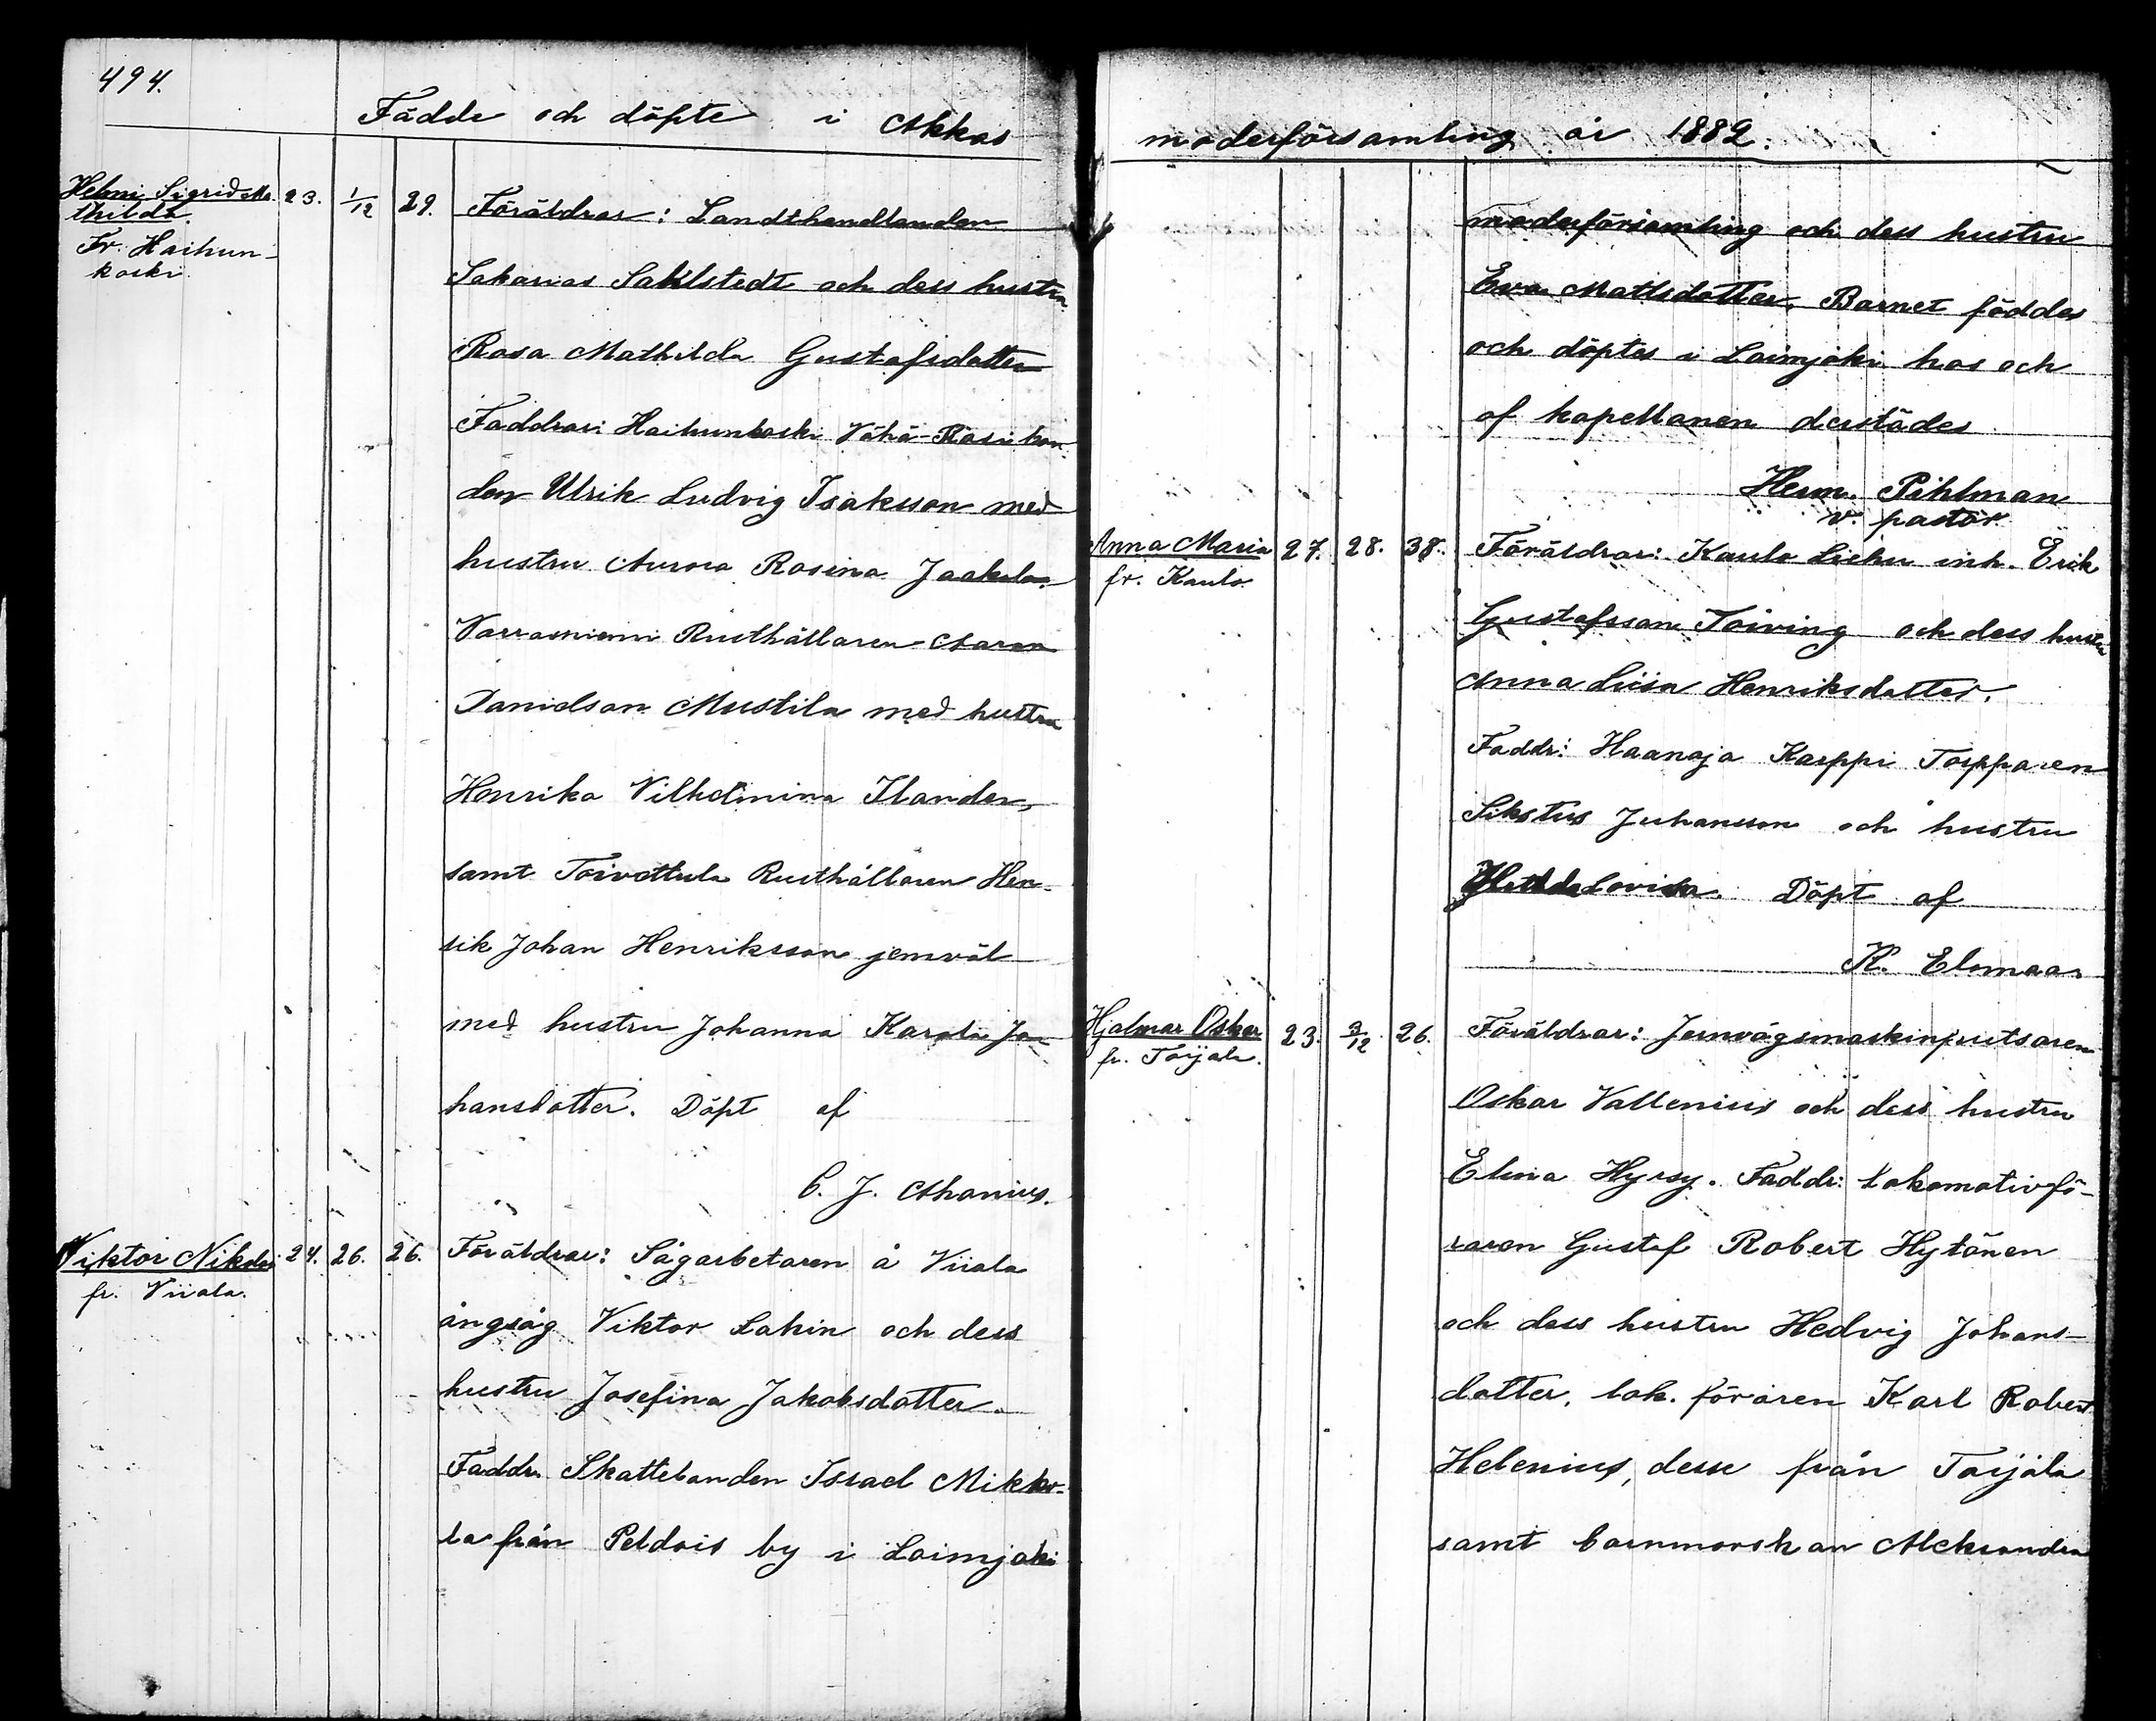 494.
Födde och döpte i Akkas
Helmi Sigrid Ma-
thilda.
Fr. Haihun-
koski.
23. 1/12 29.
Föräldrar: Landthandlanden
Sakarias Sahlstedt och dess hustru
Rosa Mathilda Gustafsdotter
Faddrar: Haihunkoski Vähä-Rasi bon-
den Ulrik Ludvig Isaksson med
hustru Aurora Rosina Jaakola.
Varrasniemi Rusthållaren Aaron
Danielson Mustila med hustru
Henrika Vilhelmina Ilander,
samt Toivottula Rusthållaren Hen-
rik Johan Henriksson jemväl
med hustru Johanna Karolin Jo-
hansdotter. Döpt af
C. J. Ahanius.
Viktor Nikolai
fr. Viiala.
24. 26. 26.
Föräldrar: Sågarbetaren å Viiala
ångsåg Viktor Lakin och dess
hustru Josefina Jakobsdotter.
Faddr. Skattebonden Israel Mikko-
la från Peldois by i Loimjoki
moderförsamling år 1882.
moderförsamling och dess hustru
Eva Mattsdotter. Barnet föddes
och döptes i Loimjoki hos och
af kapellanen derstädes
Herm. Pihlman
v. pastor
Anna Maria
fr. Kaulo
27. 28. 38.
Föräldrar: Kaulo Liehu inh. Erik
Gustafsson Toiving och dess hustru
Anna Liisa Henriksdotter.
Faddr: Haanoja Karppi Torpparen
Sikstus Juhansson och hustru
Hilda Lovisa. Döpt af
K. Elomaa.
Hjalmar Oskar
fr. Toijala.
23. 3/12 26.
Föräldrar: Jernvägsmaskinputsaren
Oskar Vallenius och dess hustru
Elina Hyrsy. Faddr: lokomotivfö-
raren Gustaf Robert Hytönen
och dess hustru Hedvig Johans-
dotter, lok. föraren Karl Robert
Helenius, desse från Toijala
samt barnmorskan Aleksandra